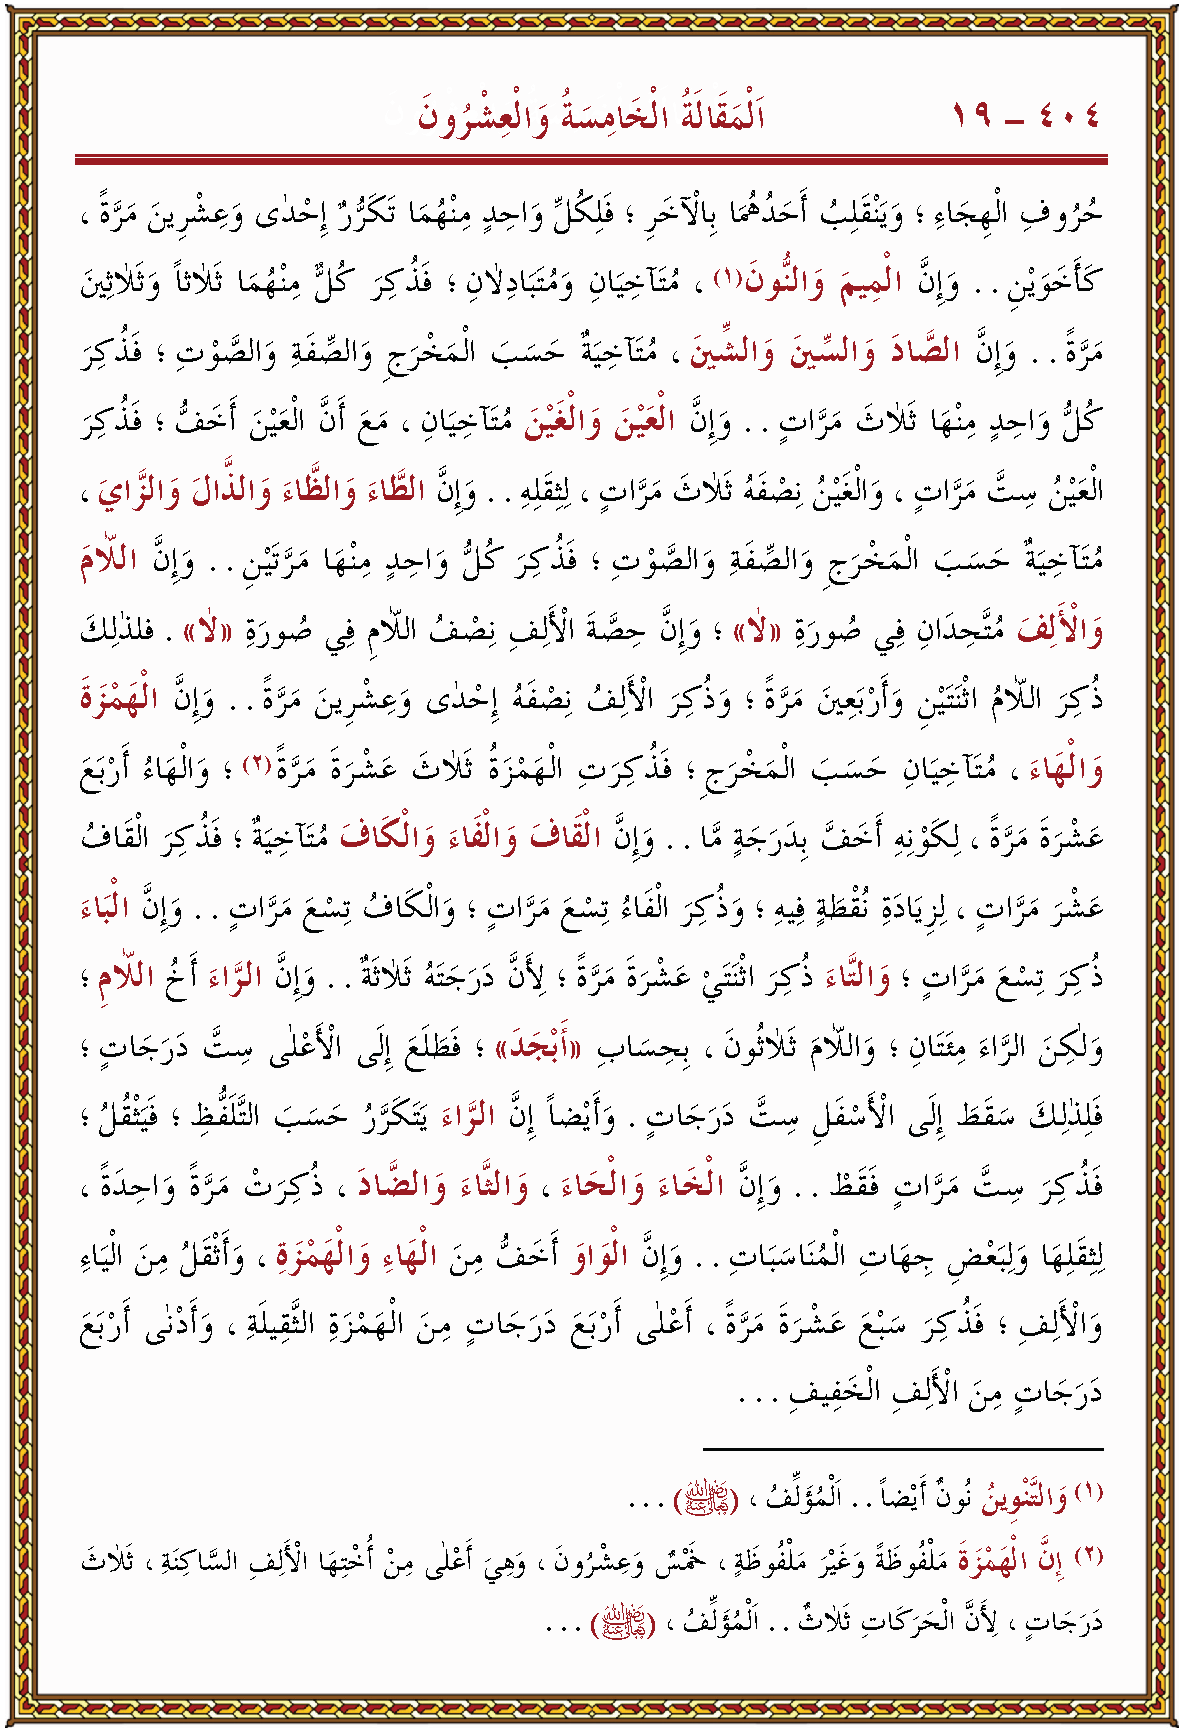 ٤٠٤ – ١٩ اَلْمَقَالَةُ الْخَامِسَةُ وَالْعِشْرُونَ
حُرُوفِ الْهِجَاءِ ؛ وَيَنْقَلِبُ أَحَدُهُمَا بِالْآخَرِ ؛ فَلِكُلٍّ وَاحِدٍ مِنْهُمَا تَكَرُّرٌ إِحْدٰى وَعِشْرِينَ مَرَّةً ،
كَأَخَوَيْنِ . . وَإِنَّ الْمِيمَ وَالنُّونَ(١) ، مُتَآخِيَانِ وَمُتَبَادِلَانِ ؛ فَذُكِرَ كُلٌّ مِنْهُمَا ثَلَاثاً وَثَلَاثِينَ
مَرَّةً . . وَإِنَّ الصَّادَ وَالسِّينَ وَالشِّينَ ، مُتَآخِيَةٌ حَسَبَ الْمَخْرَجِ وَالصِّفَةِ وَالصَّوْتِ ؛ فَذُكِرَ
كُلُّ وَاحِدٍ مِنْهَا ثَلَاثَ مَرَّاتٍ . . وَإِنَّ الْعَيْنَ وَالْغَيْنَ مُتَآخِيَانِ ، مَعَ أَنَّ الْعَيْنَ أَخَفُّ ؛ فَذُكِرَ
الْعَيْنُ سِتَّ مَرَّاتٍ ، وَالْغَيْنُ نِصْفَهُ ثَلَاثَ مَرَّاتٍ ، لِثِقَلِهِ . . وَإِنَّ الطَّاءَ وَالظَّاءَ وَالذَّالَ وَالزَّايَ ،
مُتَآخِيَةٌ حَسَبَ الْمَخْرَجِ وَالصِّفَةِ وَالصَّوْتِ ؛ فَذُكِرَ كُلُّ وَاحِدٍ مِنْهَا مَرَّتَيْنِ . . وَإِنَّ اللَّامَ
وَالْأَلِفَ مُتَّحِدَانِ فِي صُورَةِ «لَا» ؛ وَإِنَّ حِصَّةَ الْأَلِفِ نِصْفُ اللَّامِ فِي صُورَةِ «لَا» . فلذلِكَ
ذُكِرَ اللَّامُ اثْنَتَيْنِ وَأَرْبَعِينَ مَرَّةً ؛ وَذُكِرَ الْأَلِفُ نِصْفَهُ إِحْدٰى وَعِشْرِينَ مَرَّةً . . وَإِنَّ الْهَمْزَةَ
وَالْهَاءَ ، مُتَآخِيَانِ حَسَبَ الْمَخْرَجِ ؛ فَذُكِرَتِ الْهَمْزَةُ ثَلَاثَ عَشْرَةَ مَرَّةً(٢) ؛ وَالْهَاءُ أَرْبَعَ
عَشْرَةَ مَرَّةً ، لِكَوْنِهِ أَخَفَّ بِدَرَجَةٍ مَّا . . وَإِنَّ الْقَافَ وَالْفَاءَ وَالْكَافَ مُتَآخِيَةٌ ؛ فَذُكِرَ الْقَافُ
عَشْرَ مَرَّاتٍ ، لِزِيَادَةِ نُقْطَةٍ فِيهِ ؛ وَذُكِرَ الْفَاءُ تِسْعَ مَرَّاتٍ ؛ وَالْكَافُ تِسْعَ مَرَّاتٍ . . وَإِنَّ الْبَاءَ
ذُكِرَ تِسْعَ مَرَّاتٍ ؛ وَالتَّاءَ ذُكِرَ اثْنَتَيْ عَشْرَةَ مَرَّةً ؛ لِأَنَّ دَرَجَتَهُ ثَلَاثَةٌ . . وَإِنَّ الرَّاءَ أَخُ اللَّامِ ؛
وَلٰكِنَ الرَّاءَ مِئَتَانِ ؛ وَاللَّامَ ثَلَاثُونَ ، بِحِسَابِ «أَبْجَدَ» ؛ فَطَلَعَ إِلَى الْأَعْلٰى سِتَّ دَرَجَاتٍ ؛
فَلِذٰلِكَ سَقَطَ إِلَى الْأَسْفَلِ سِتَّ دَرَجَاتٍ . وَأَيْضاً إِنَّ الرَّاءَ يَتَكَرَّرُ حَسَبَ التَّلَفُّظِ ؛ فَيَثْقُلُ ؛
فَذُكِرَ سِتَّ مَرَّاتٍ فَقَطْ . . وَإِنَّ الْخَاءَ وَالْحَاءَ ، وَالثَّاءَ وَالضَّادَ ، ذُكِرَتْ مَرَّةً وَاحِدَةً ،
لِثِقَلِهَا وَلِبَعْضِ جِهَاتِ الْمُنَاسَبَاتِ . . وَإِنَّ الْوَاوَ أَخَفُّ مِنَ الْهَاءِ وَالْهَمْزَةِ ، وَأَثْقَلُ مِنَ الْيَاءِ
وَالْأَلِفِ ؛ فَذُكِرَ سَبْعَ عَشْرَةَ مَرَّةً ، أَعْلٰى أَرْبَعَ دَرَجَاتٍ مِنَ الْهَمْزَةِ الثَّقِيلَةِ ، وَأَدْنٰى أَرْبَعَ
دَرَجَاتٍ مِنَ الْأَلِفِ الْخَفِيفِ . . .
(١) وَالتَّنْوِينُ نُونٌ أَيْضاً . . اَلْمُؤَلِّفُ ، (رَضِيَ اللهُ تَعَالَى عَنْهُ) . . .
(٢) إِنَّ الْهَمْزَةَ مَلْفُوظَةً وَغَيْرَ مَلْفُوظَةٍ ، خَمْسٌ وَعِشْرُونَ ، وَهِيَ أَعْلٰى مِنْ أُخْتِهَا الْأَلِفِ السَّاكِنَةِ ، ثَلَاثَ
دَرَجَاتٍ ، لِأَنَّ الْحَرَكَاتِ ثَلَاثٌ . . اَلْمُؤَلِّفُ ، (رَضِيَ اللهُ تَعَالَى عَنْهُ) . . .